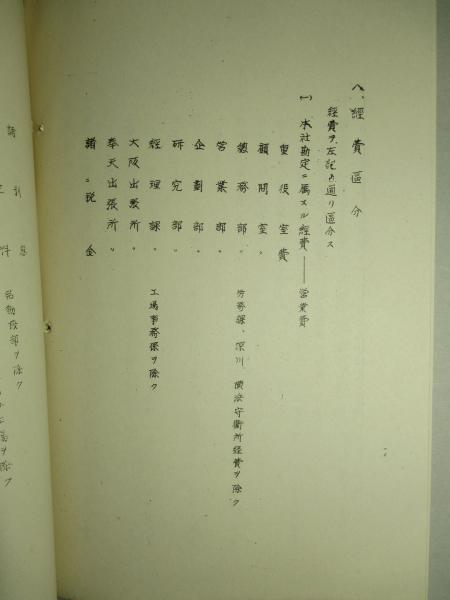 八、經費區分
經費ヲ左記ノ通リ區分ス
(一) 本社勘定ニ属スル經費——営業費
重役室費
顧問室〃
総務部〃 労務課、深川、横浜守衞所経費ヲ除ク
営業部〃
企劃部〃
研究部〃
経理課〃 工場事務係ヲ除ク
大阪出張所〃
奉天出張所〃
諸公税金
ヲ除ク